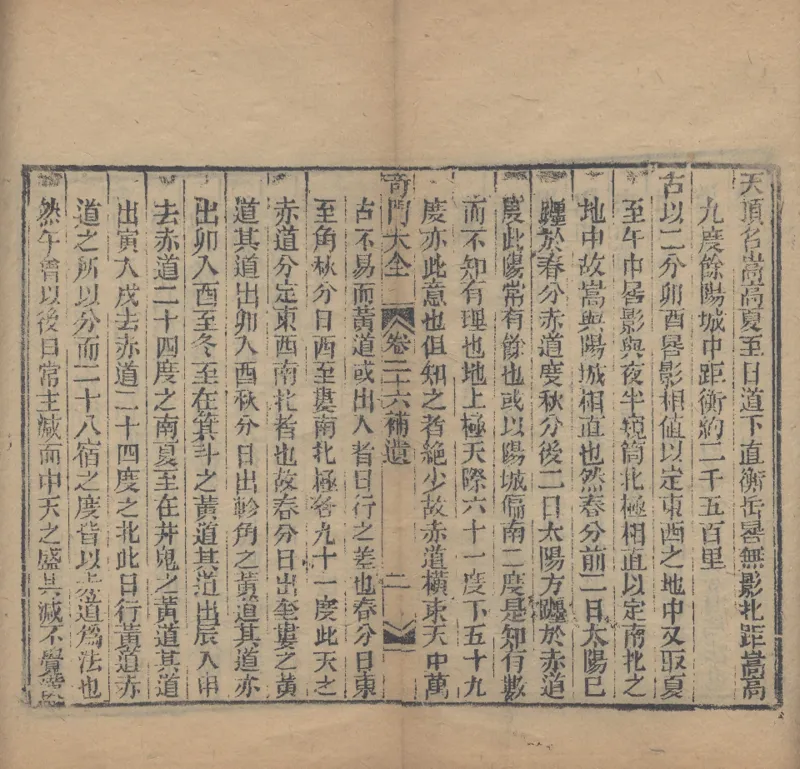 天頂名嵩高夏至日道下直衡岳晷無影北距嵩高
九度餘陽城中距衡約二千五百里
古以二分卯酉晷影相値以定東西之地中又取夏
至午中晷影與夜半窺筒北極相直以定南北之
地中故嵩與陽城相直也然春分前二日太陽已
躔於春分赤道度秋分後二日太陽方躔於赤道
度此陽常有餘也或以陽城偏南二度是知有數
而不知有理也地上極天際六十一度下五十九
度亦此意也但知之者絶少故赤道橫東天中萬
奇門大全 卷二十六補遺 二
古不易而黃道或出入者日行之差也春分日東
至角秋分日西至婁南北極各九十一度此天之
赤道分定東西南北者也故春分日出奎婁之黃
道其道出卯入酉秋分日出軫角之黃道其道亦
出卯入酉至冬至在箕斗之黃道其道出辰入申
去赤道二十四度之南夏至在井鬼之黃道其道
出寅入戌去赤道二十四度之北此日行黃道赤
道之所以分而二十八宿之度皆以赤道爲法也
然午會以後日常主減而中天之盛其減不覺